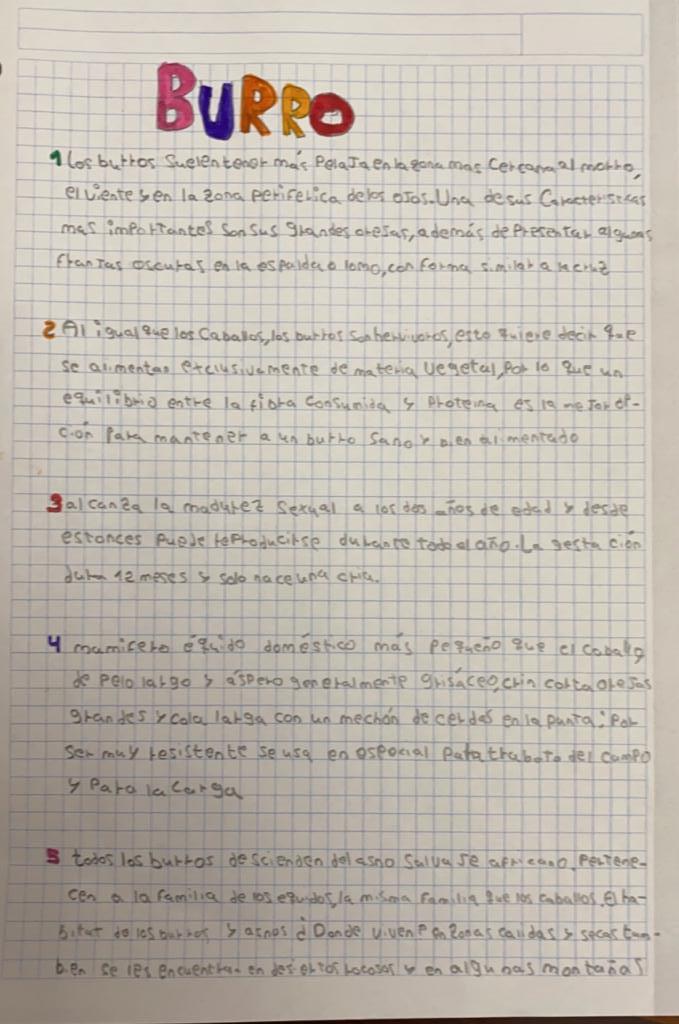 BURRO
1 los burros suelen tener más pelaja en la zona mas cercana al morro,
el viente y en la zona periferica de los ojos. Una de sus Caracteristicas
mas importantes son sus grandes orejas, además de presentar algunas
franjas oscuras en la espalda o lomo, con forma similar a la cruz
2 Al igual que los Caballos, los burros son hervivoros, esto quiere decir que
se alimentan exclusivamente de materia vegetal, por lo que un
equilibrio entre la fibra consumida y proteina es la mejor op-
ción para mantener a un burro sano y bien alimentado
3 alcanza la madurez sexual a los dos años de edad y desde
estonces puede reproducirse durante todo el año. La gestación
dura 12 meses y solo nace una cria.
4 mamifero équido doméstico más pequeño que el caballo
de pelo largo y áspero generalmente grisáceo, crin corta orejas
grandes y cola larga con un mechón de cerdas en la punta: por
ser muy resistente se usa en especial para trabajo del campo
y para la carga
5 todos los burros descienden del asno salvaje africano. Pertene-
cen a la familia de los equidos, la misma familia que los caballos. El ha-
bitat de los burros y asnos ¿Donde viven? en zonas calidas y secas tam-
bien se les encuentran en desiertos rocosos y en algunas montañas